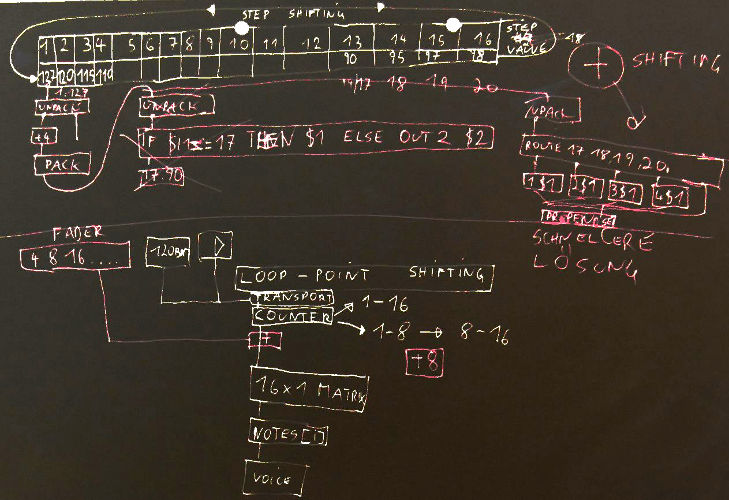 STEP SHIFTING
1 2 3 4 5 6 7 8 9 10 11 12 13 14 15 16 STEP
90 95 97 98 VALUE
SHIFTING
+
127 120 119 110
1.127
17 18 19 20
UNPACK
UNPACK
UNPACK
+4
IF $i1 == 17 THEN $1 ELSE OUT2 $2
PACK
17.90
ROUTE 17 18, 19, 20.
1 $1 2 $1 3 $1 4 $1
PREPEND SE
SCHNELLERE
LÖSUNG
FADER
4 8 16....
120BPM
LOOP-POINT SHIFTING
TRANSPORT
COUNTER
1-16
1-8 → 8-16
+
+8
16x1 MATRIX
NOTES[i]
VOICE